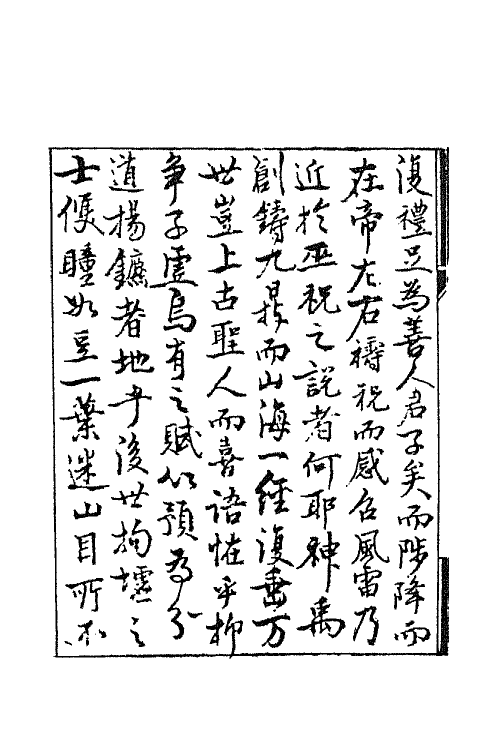 復禮足為善人君子矣而陟降而
在帝左右禱祝而感召風雷乃
近於巫祝之說者何耶神禹
創鑄九鼎而山海一經復垂万
世豈上古聖人而喜語怪乎抑
争子虛烏有之賦以預為分
道揚鑣者地乎後世拘墟之
士雙瞳如豆一葉迷山目所不